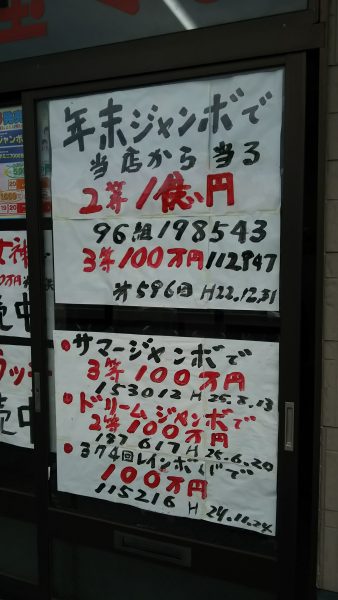 年末ジャンボで
当店から当る
2等1億円
96組198543
3等100万円112947
第596回 H22.12.31
●サマージャンボで
3等100万円
153012 H25.8.13
●ドリームジャンボで
2等100万円
187617 H25.6.20
●374回レインボーくじで
100万円
115216 H24.11.24
女神
売中
ラッキ
売中